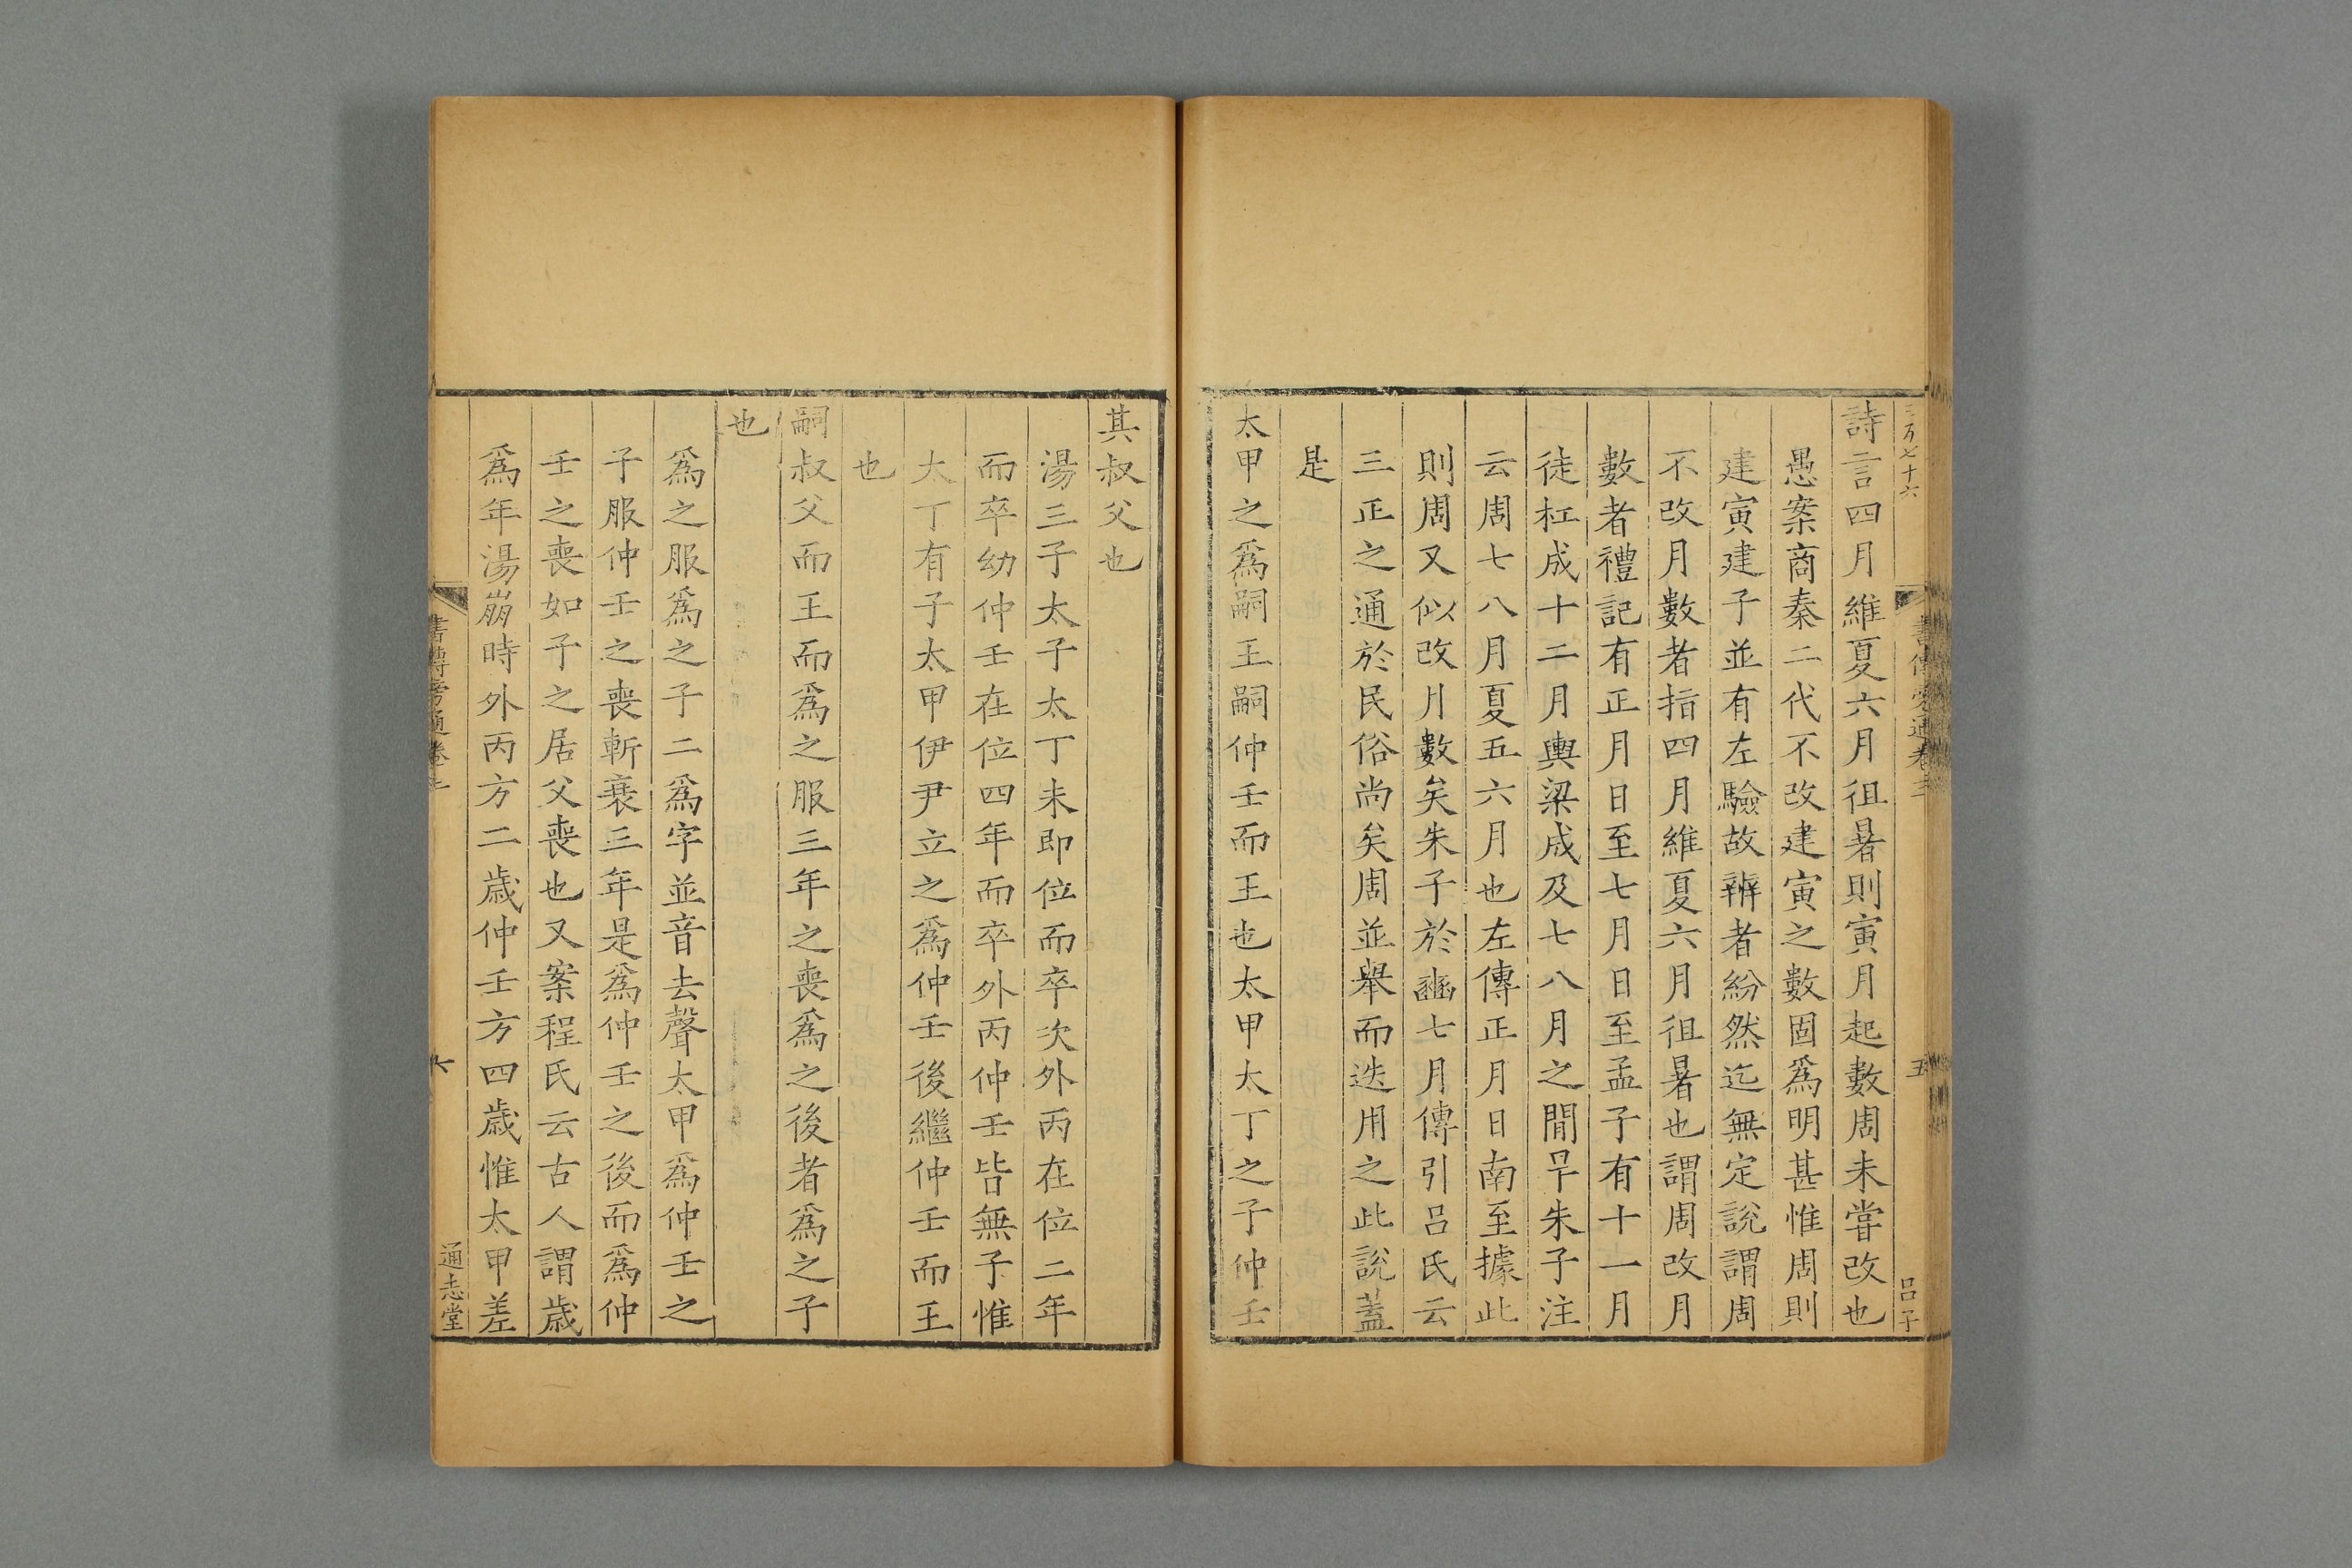 三百七十六
書傳旁通卷三
五
呂子
詩言四月維夏六月徂暑則寅月起數周未甞改也
愚案商秦二代不改建寅之數固爲明甚惟周則
建寅建子並有左驗故辨者紛然迄無定說謂周
不改月數者指四月維夏六月徂暑也謂周改月
數者禮記有正月日至七月日至孟子有十一月
徒杠成十二月輿梁成及七八月之間旱朱子注
云周七八月夏五六月也左傳正月日南至據此
則周又似改月數矣朱子於豳七月傳引呂氏云
三正之通於民俗尚矣周並舉而迭用之此說蓋
是
太甲之爲嗣王嗣仲壬而王也太甲太丁之子仲壬
其叔父也
湯三子太子太丁未即位而卒次外丙在位二年
而卒幼仲壬在位四年而卒外丙仲壬皆無子惟
太丁有子太甲伊尹立之爲仲壬後繼仲壬而王
也
嗣叔父而王而爲之服三年之喪爲之後者爲之子
也
爲之服爲之子二爲字並音去聲太甲爲仲壬之
子服仲壬之喪斬衰三年是爲仲壬之後而爲仲
壬之喪如子之居父喪也又案程氏云古人謂歲
爲年湯崩時外丙方二歲仲壬方四歲惟太甲差
書傳旁通卷三
六
通志堂